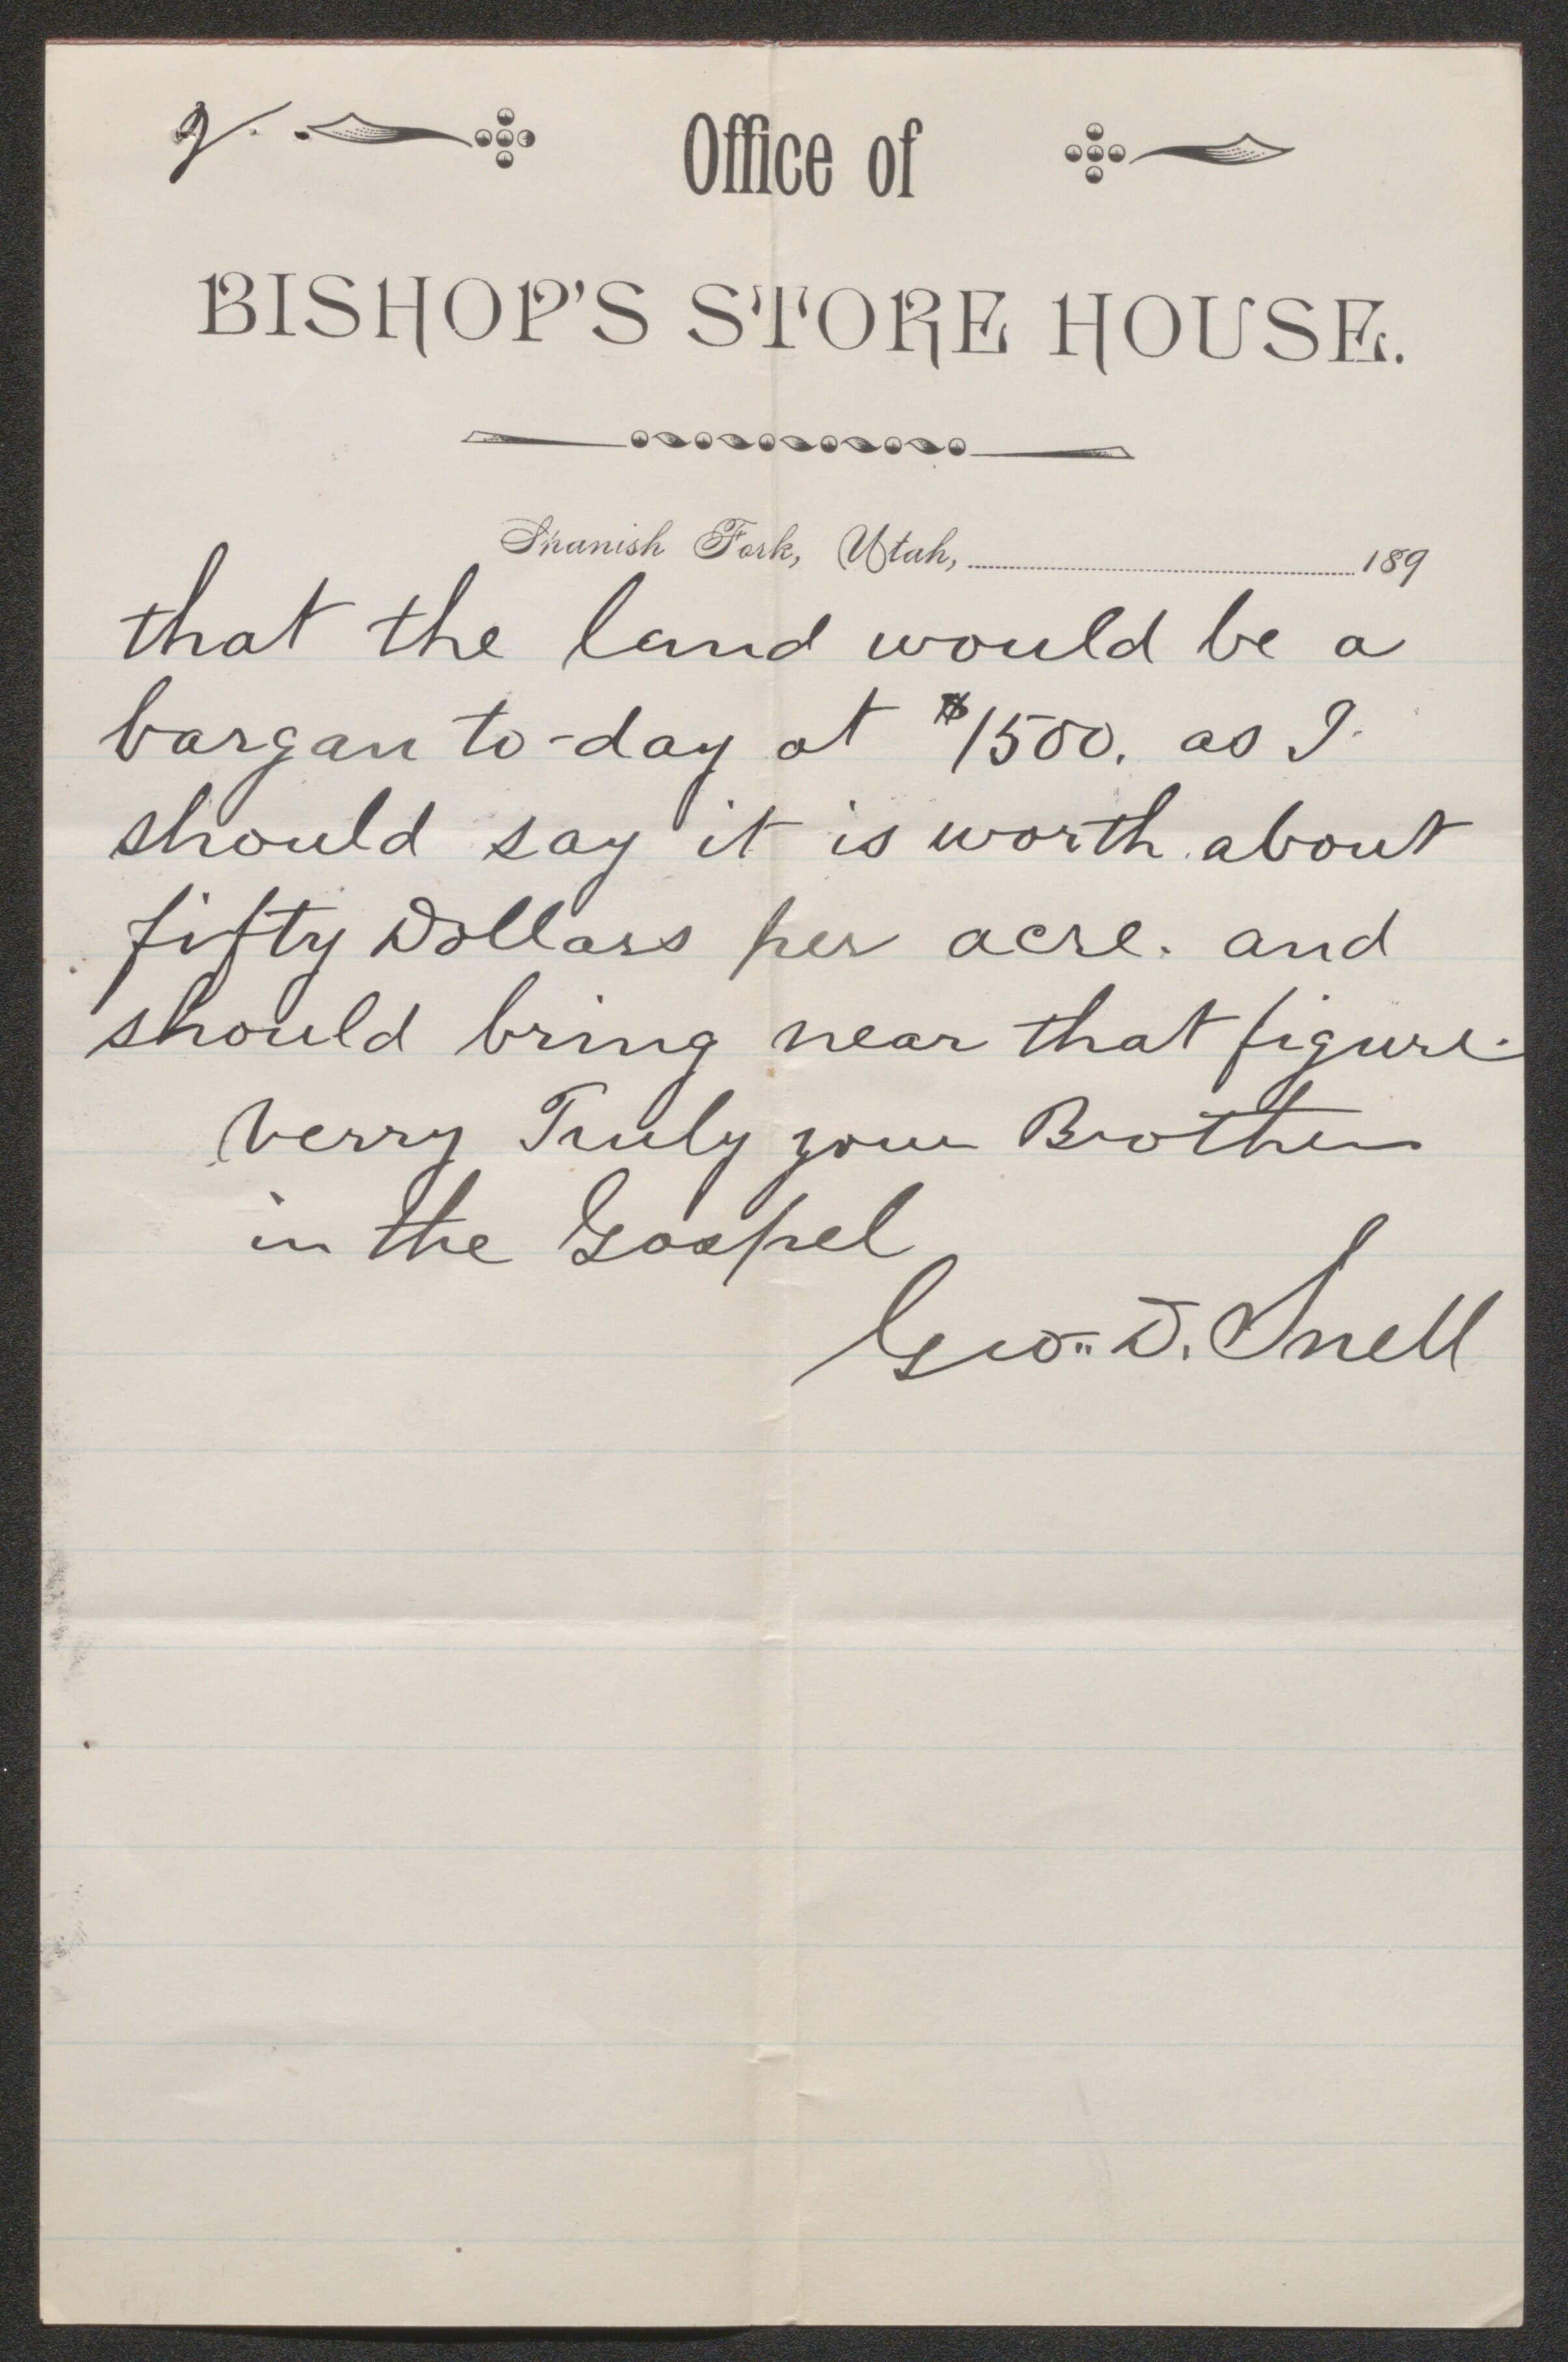 2.
Office of
BISHOP'S STORE HOUSE.
Spanish Fork, Utah, 189
that the land would be a
bargan to-day at $1500. as I
should say it is worth about
fifty Dollars per acre. and
should bring near that figure.
Verry Truly your Brother
in the Gospel
Geo. D. Snell